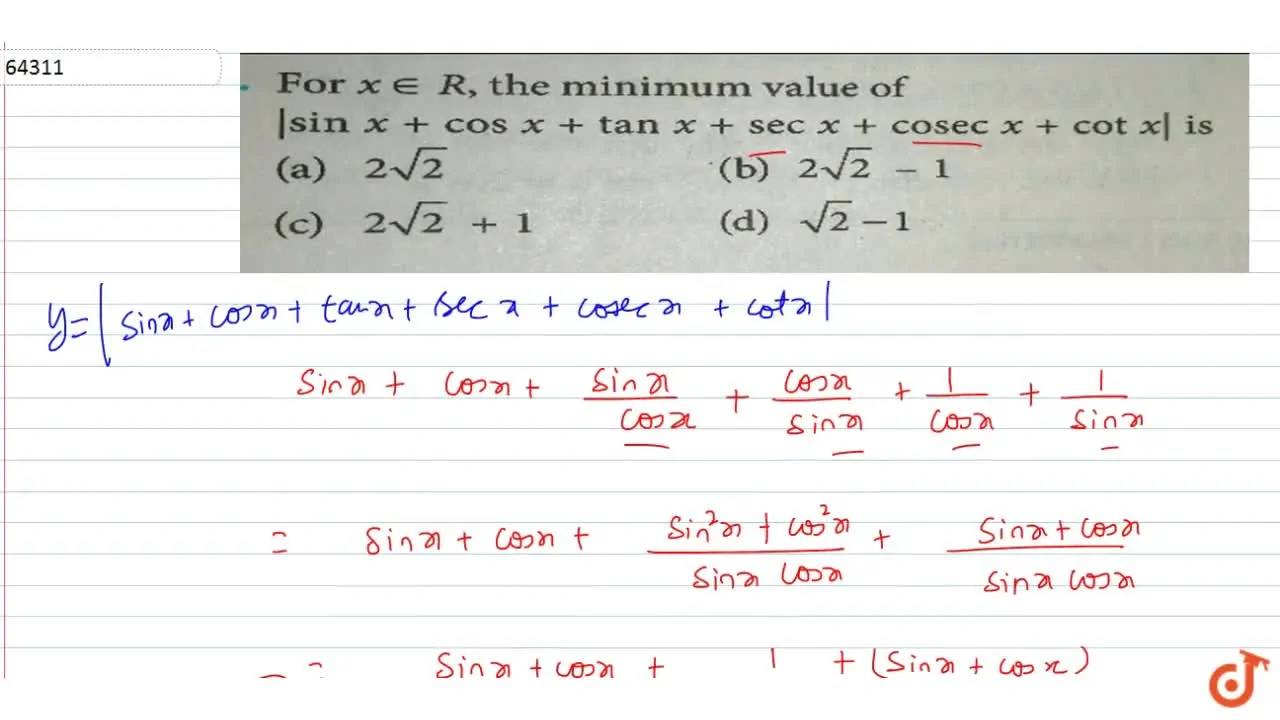 64311
For x ∈ R, the minimum value of
|sin x + cos x + tan x + sec x + cosec x + cot x| is
(a) 2√2 (b) 2√2 − 1
(c) 2√2 + 1 (d) √2 − 1
y = | sinx + cosx + tanx + sec x + cosec x + cotx |
sinx + cosx + sinx/cosx + cosx/sinx + 1/cosx + 1/sinx
= sinx + cosx + (sin²x + cos²x)/(sinx cosx) + (sinx + cosx)/(sinx cosx)
= sinx + cosx + 1 + (sinx + cosx)